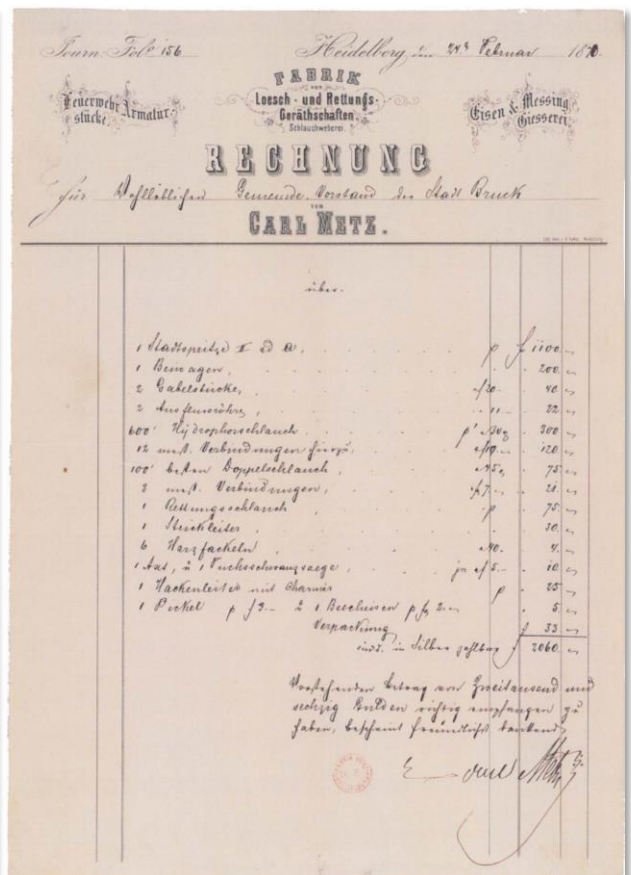 Journ. Fol. 156 Heidelberg, den 24ᵗ Februar 1870.
FABRIK
VON
Loesch- und Rettungs-
Geräthschaften.
Schlauchweberei.
Feuerwehr-Armatur-
stücke.
Eisen & Messing
Giesserei.
RECHNUNG
für Wohllöblichen Gemeinde-Vorstand der Stadt Bruck
VON
CARL METZ.
über.
1 Stadtspritze II ad a. p f 1100.
1 Beiwagen, 200.
2 Gabelstücke, 20. 40.
2 11. 22.
600' Hydrophorschlauch p' 300
12 mess. Verbindungen hierzu, 10. 120
100' besten Doppelschlauch, 45 75
mess. Verbindungen, f 7. 21.
1 Rettungsschlauch p 75
1 Strickleiter 30.
6 Harzfackeln 40. 4.
1 Axt, à 1 Fuchsschwanzsaege, f 5. 10
1 Hackenleiter mit Charnier p 25
1 Pickel p f 3. à 1 p f 2. 5.
Verpackung f 33
in Silber zahlbar f 2060
Vorstehenden Betrag von Zweitausend und
sechzig Gulden richtig empfangen zu
haben, bescheint freundlichst dankend
Carl Metz